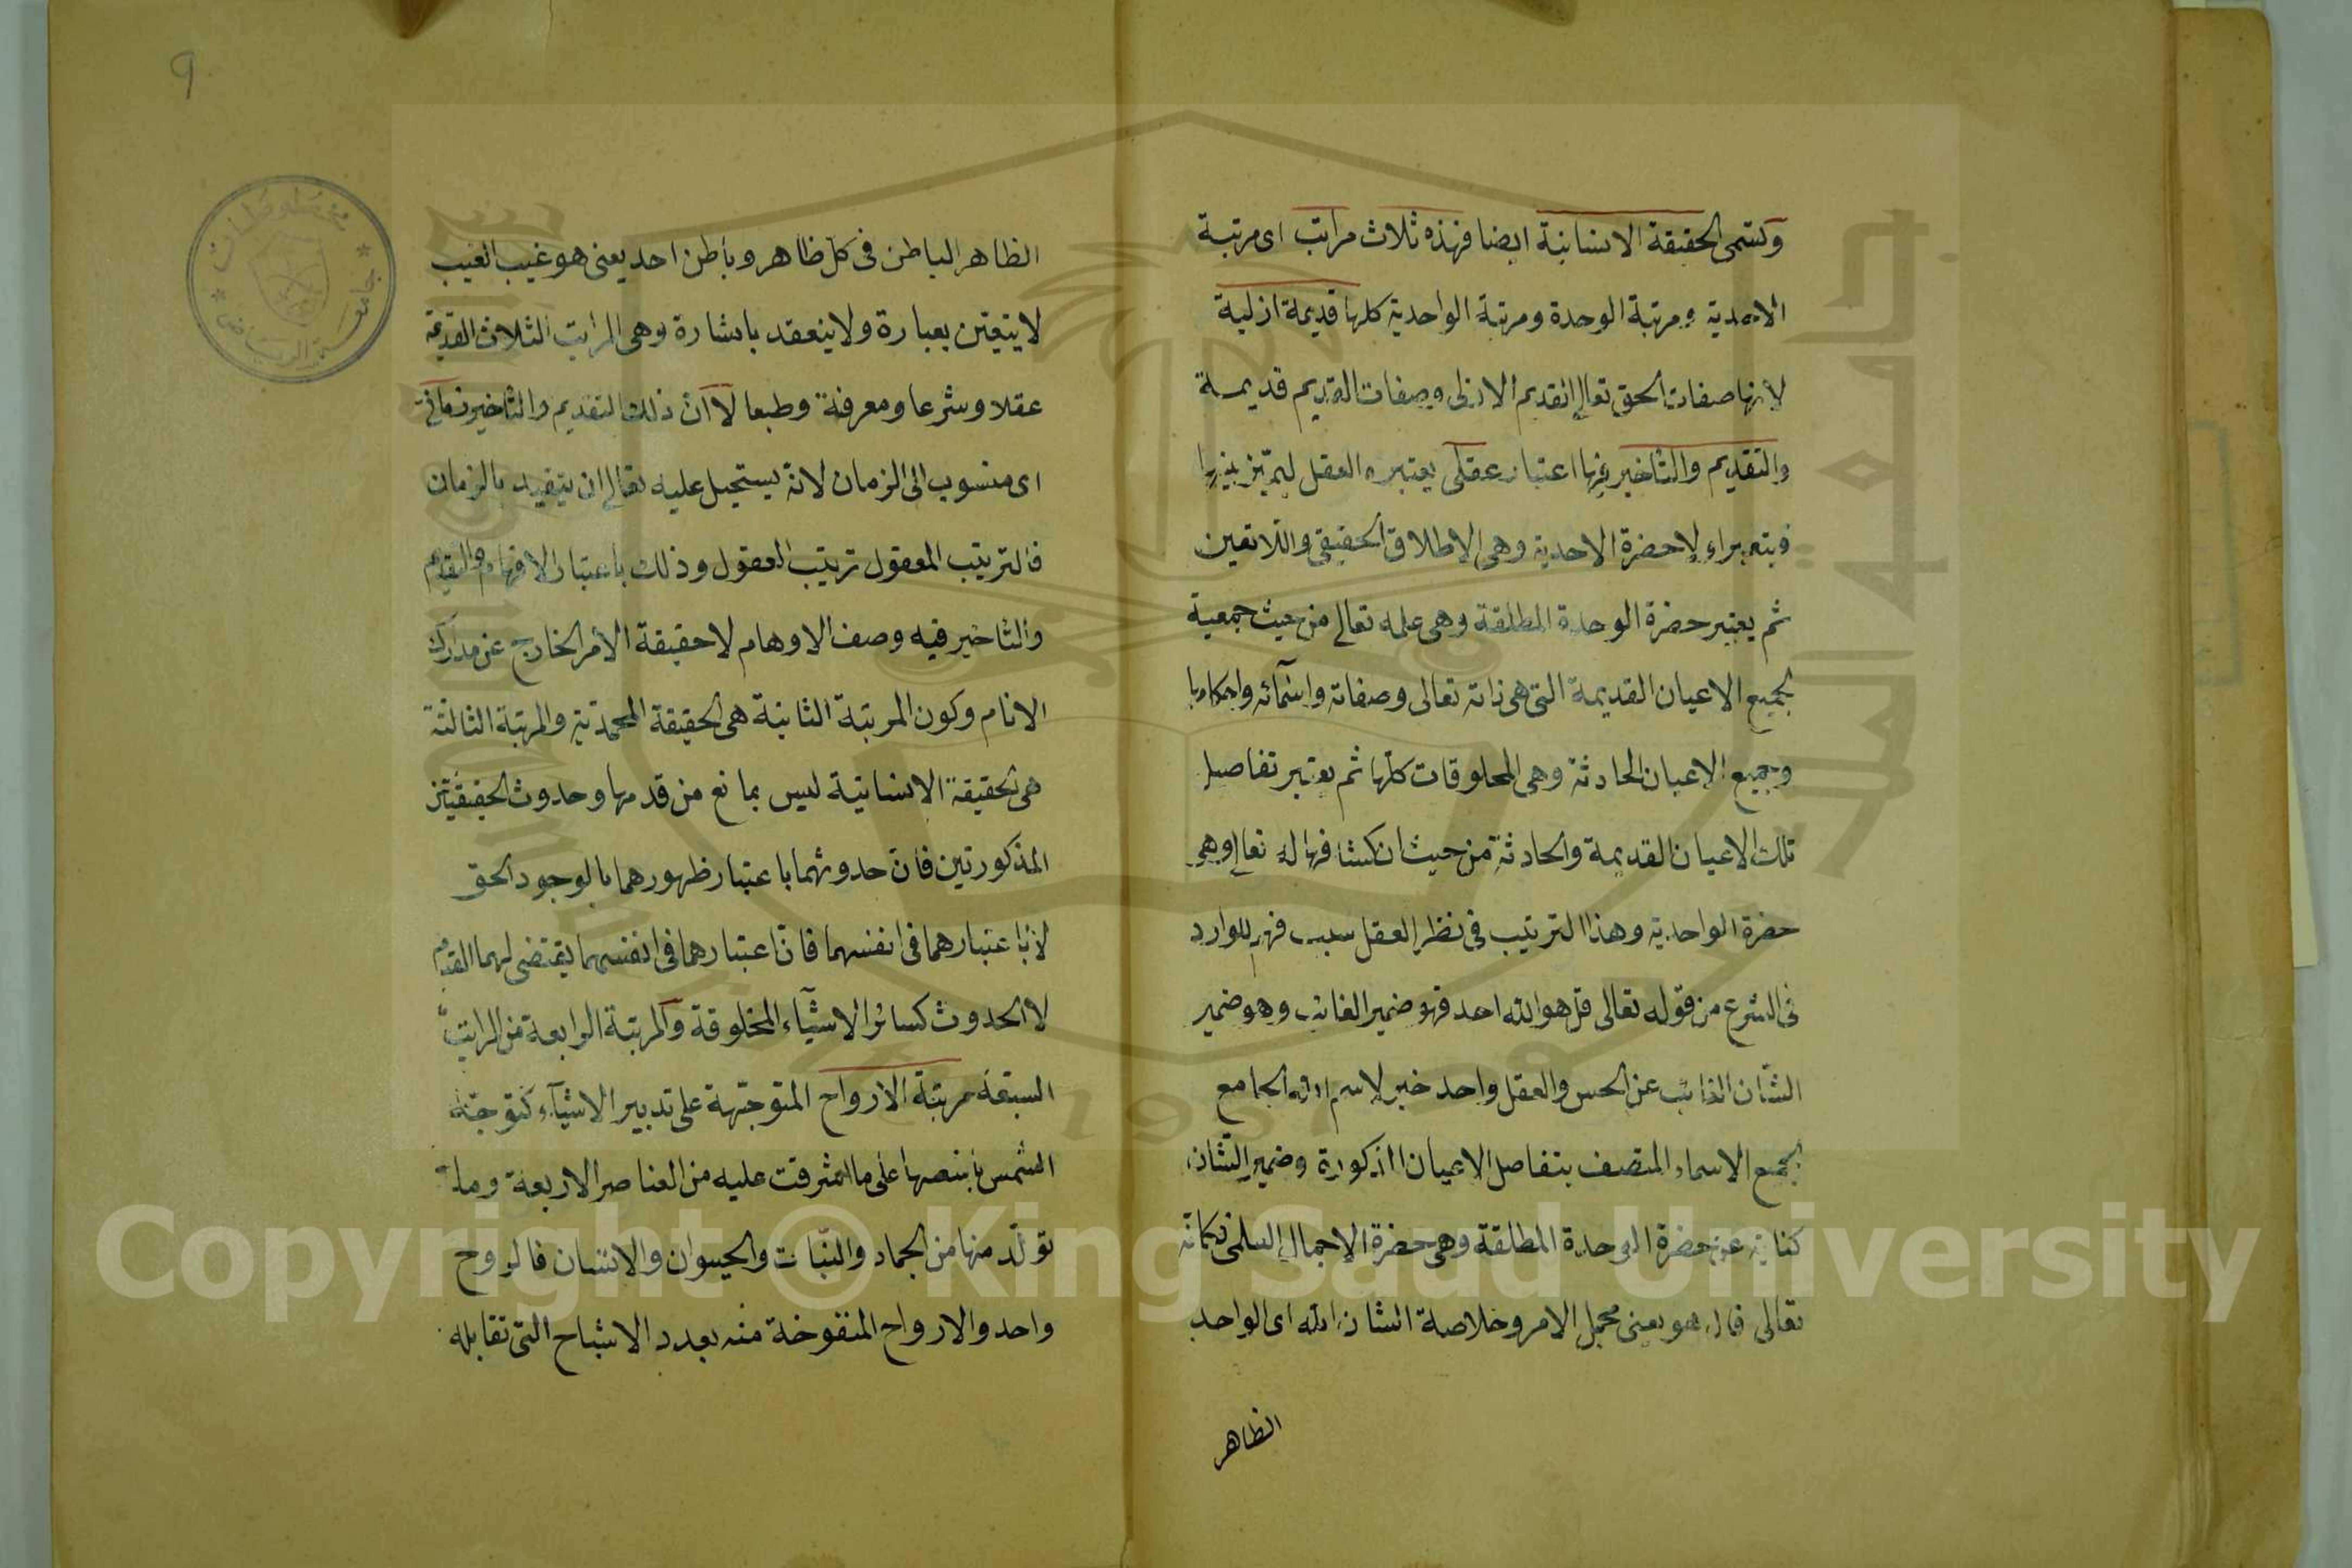 وتسمى الحقيقة الانسانية ايضا فهذه ثلاث مراتب اى مرتبة
الاحدية ومرتبة الوحدة ومرتبة الواحدية كلها قديمة ازلية
لانها صفات الحق تعالى القديم الازلى وصفات القديم قديمة
والتقديم والتاخير فيها اعتبار عقلى يعتبره العقل ليتميز بينها
لاحضرة الاحدية وهى الاطلاق الحقيقى واللاتعين
ثم يعتبر حضرة الوحدة المطلقة وهى علمه تعالى من حيث جمعية
لجميع الاعيان القديمة التى هى ذاته تعالى وصفاته واسمآئه واحكامها
وجميع الاعيان الحادثة وهى المخلوقات كلها ثم يعتبر تفاصيل
تلك الاعيان القديمة والحادثة من حيث انكشافها له تعالى وهى
حضرة الواحدية وهذا الترتيب فى نظر العقل سبب فهم للوارد
فى الشرع من قوله تعالى قل هو الله احد فهو ضمير الغائب وهو ضمير
الشان الغائب عن الحس والعقل واحد خبر لاسم الله الجامع
لجميع الاسماء المتصف بتفاصل الاعيان المذكورة وضمير الشان
كناية عن حضرة الوحدة المطلقة وهى حضرة الاجمال العلمى فكانه
تعالى قال هو يعنى مجمل الامر وخلاصة الشان الله اى الواحد
الظاهر
9
الظاهر الباطن فى كل ظاهر وباطن احد يعنى هو غيب الغيب
لا يتعين بعبارة ولا ينعقد باشارة وهى المراتب الثلاث القديمة
عقلا وشرعا ومعرفة وطبعا لا ان ذلك التقديم والتاخير زمانى
اى منسوب الى الزمان لانه يستحيل عليه تعالى ان يتقيد بالزمان
فالترتيب المعقول ترتيب العقول وذلك باعتبار الافهام والتقديم
والتاخير فيه وصف الاوهام لا حقيقة الامر الخارج عن مدارك
الانام وكون المرتبة الثانية هى الحقيقة المحمدية والمرتبة الثالثة
هى الحقيقة الانسانية ليس بمانع من قدمها وحدوث الحقيقتين
المذكورتين فان حدوثهما باعتبار ظهورهما بالوجود الحق
لا باعتبارهما فى انفسهما فان اعتبارهما فى انفسهما يقتضى لهما القدم
لا الحدوث كسائر الاشيآء المخلوقة والمرتبة الرابعة من المراتب
السبعة مرتبة الارواح المتوجهة على تدبير الاشيآء كتوجه
الشمس على ما اشرقت عليه من العناصر الاربعة وما
تولد منها من الجماد والنبات والحيوان والانسان فالروح
واحد والارواح المنفوخة منه بعدد الاشباح التى تقابله
مخطوطات
جامعة الرياض
جامعة الملك سعود
King Saud University
1957
Copyright © King Saud University